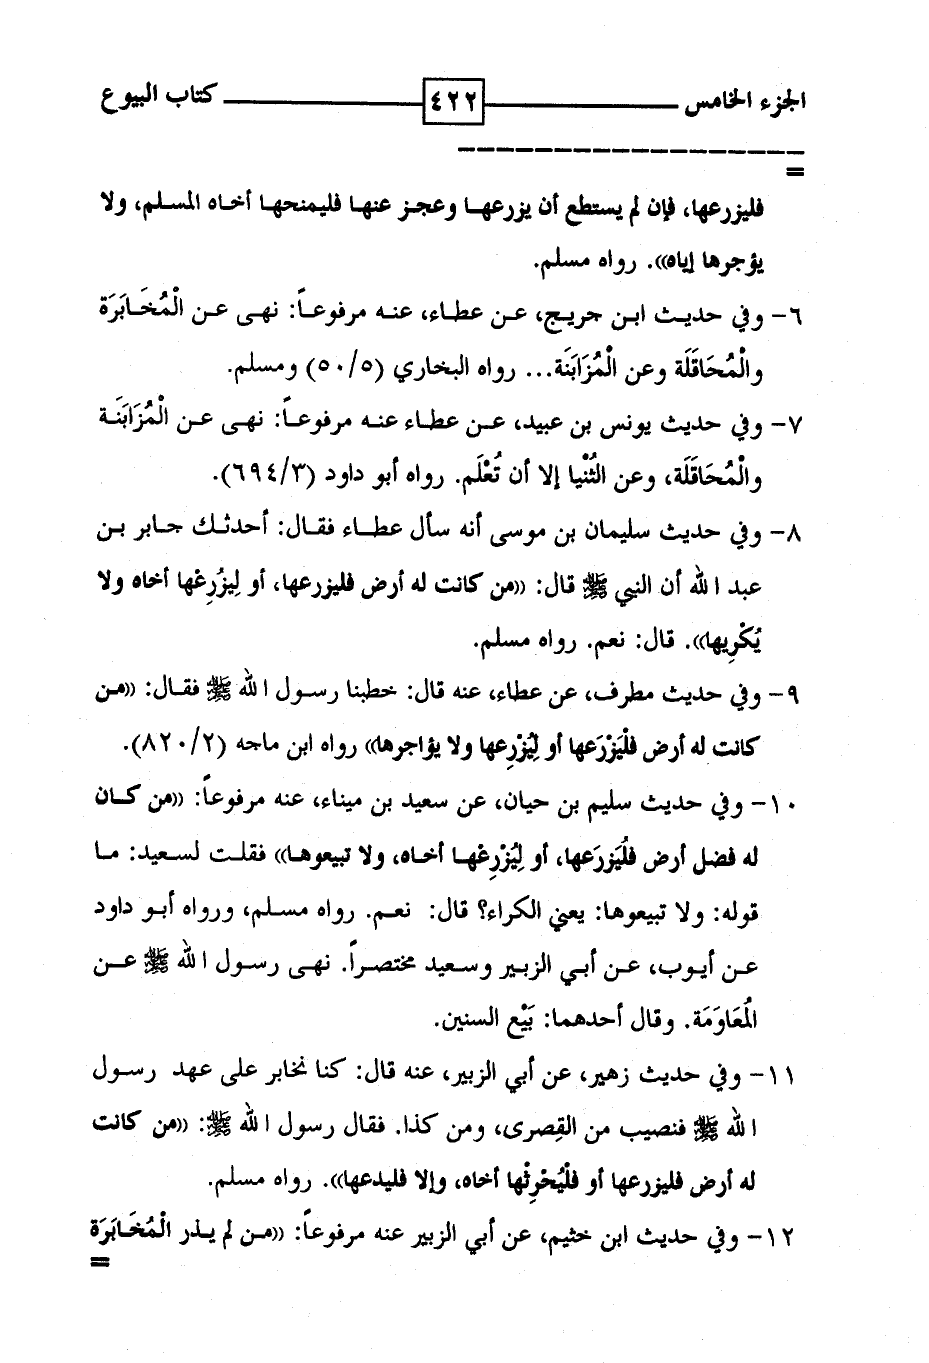 الجزء الخامس ٤٢٢ كتاب البيوع
=
فليزرعها، فإن لم يستطع أن يزرعها وعجز عنها فليمنحها أخاه المسلم، ولا
يؤجرها إياه)). رواه مسلم.
٦- وفي حديث ابن جريج، عن عطاء، عنه مرفوعاً: نهى عن الْمُخَابَرَة
والْمُحَاقَلَة وعن الْمُزَابَنَة... رواه البخاري (٥٠/٥) ومسلم.
٧- وفي حديث يونس بن عبيد، عن عطاء عنه مرفوعاً: نهى عن الْمُزَابَنَة
والْمُحَاقَلَة، وعن الثُنْيا إلا أن تُعْلَم. رواه أبو داود (٦٩٤/٣).
٨- وفي حديث سليمان بن موسى أنه سأل عطاء فقال: أحدثك جابر بن
عبد الله أن النبي ﷺ قال: ((من كانت له أرض فليزرعها، أو لِيزُرِعْها أخاه ولا
يُكْرِيها)). قال: نعم. رواه مسلم.
٩- وفي حديث مطرف، عن عطاء، عنه قال: خطبنا رسول الله ﷺ فقال: ((من
كانت له أرض فلْيَزْرَعها أو لِيُزْرِعها ولا يؤاجرها)) رواه ابن ماجه (٨٢٠/٢).
١٠- وفي حديث سليم بن حيان، عن سعيد بن ميناء، عنه مرفوعاً: ((من كان
له فضل أرض فلْيَزرَعها، أو لِيُزْرِعْها أخاه، ولا تبيعوها)) فقلت لسعيد: ما
قوله: ولا تبيعوها: يعني الكراء؟ قال: نعم. رواه مسلم، ورواه أبو داود
عن أيوب، عن أبي الزبير وسعيد مختصراً. نهى رسول الله ﷺ عن
الْمُعَاوَمَة. وقال أحدهما: بَيْع السنين.
١١- وفي حديث زهير، عن أبي الزبير، عنه قال: كنا نخابر على عهد رسول
الله ﷺ فنصيب من القِصرى، ومن كذا. فقال رسول الله ﷺ: ((من كانت
له أرض فليزرعها أو فلْيُحْرِثْها أخاه، وإلا فليدعها)). رواه مسلم.
١٢- وفي حديث ابن خثيم، عن أبي الزبير عنه مرفوعاً: ((من لم يذر الْمُخَابَرَة
=